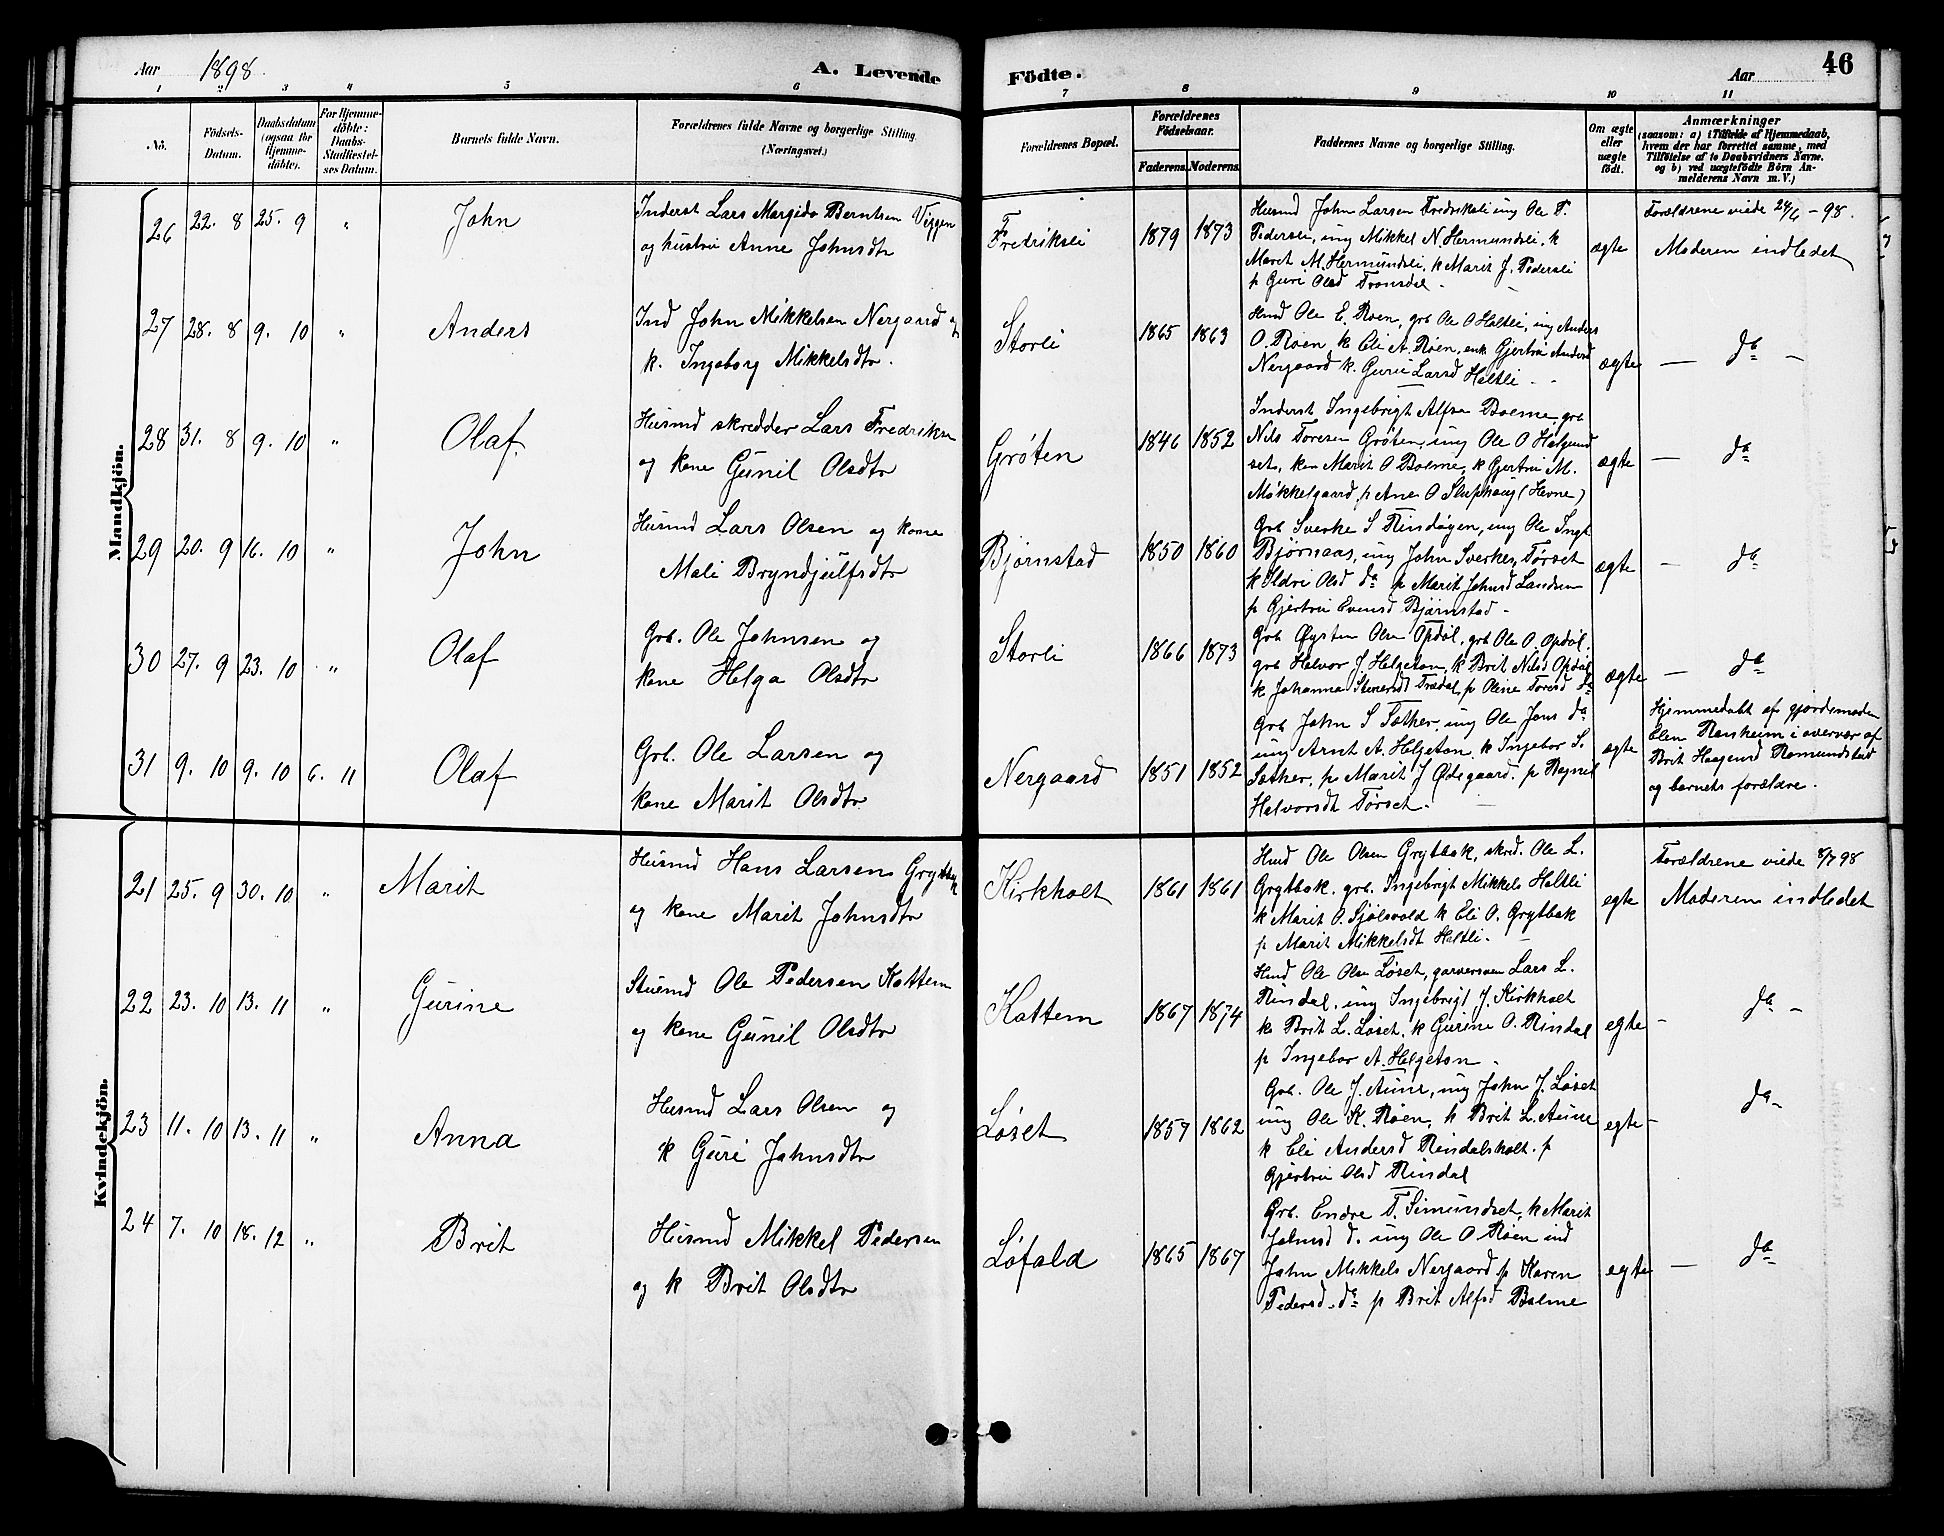 Aar 1898. A. Levende Födte. Aar 46
1 2 3 4 5 6 7 8 9 10 11
No. Födsels-Datum. Daabsdatum (ogsaa for Hjemme-döbte). For Hjemme-döbte: Daabs-Stadfæstel-ses Datum. Barnets fulde Navn. Forældrenes fulde Navne og borgerlige Stilling. (Næringsvei.) Forældrenes Bopæl. Forældrenes Födselsaar. Faderens. Moderens. Faddernes Navne og borgerlige Stilling. Om ægte eller uægte födt. Anmærkninger (saasom: a) i Tilfælde af Hjemmedaab, hvem der har forrettet samme, med Tilföielse af to Daabsvidners Navne, og b) ved uægtefödte Börn An-melderens Navn m. V.)
Mandkjön.
26 22. 8 25. 9 " John
Inderst Lars Margido Berntsen Viggen
og hustru Anne Johnsdtr
Fredriksli 1879 1873
Husmd John Larsen Fredriksli ung Ole P.
Pedersli, ung Mikkel N. Hermundsli, k
Marit M. Hermundsli, k Marit J. Pedersli
p Guri Olsd Tronsdal
ægte
Forældrene viede 24/6 - 98.
Moderen indledet
27 28. 8 9. 10 " Anders
Ind John Mikkelsen Nergaard og
k. Ingeborg Mikkelsdtr.
Storli 1865 1863
Hmd Ole E. Røen, grb Ole O Haltli, ung Anders
O. Røen, k Eli A. Røen, enk Gjertru Andersd
Nergaard k. Guru Larsd Haltli
ægte — do —
28 31. 8 9. 10 " Olaf.
Husmd skredder Lars Fredriksen
og kone Gunil Olsdtr
Grøten 1846 1852
Inderst Ingebrigt Alfsen Bolme, grb
Nils Toresen Grøten, ung Ole O Halgund
set, kon Marit O Bolme, k Gjertru M.
Mikkelgaard, p Ane O Sluphaug (Hevne)
ægte — do
29 20. 9 16. 10 " John
Husmd Lars Olsen og kone
Mali Bryndjulfsdtr
Bjørnstad 1850 1860
Grb Sverke S Rindøyen, ung Ole Ingb
Bjørnaas, ung John Sverkes Tørset
k Ildri Olsd do p Marit Johnsd Landsem
p Gjertru Evensd Bjørnstad
ægte — do
30 27. 9 23. 10 " Olaf
Grb. Ole Johnsen og
kone Helga Olsdtr
Storli 1866 1873
Grb Øysten Olsen Opdøl, grb Ole O. Opdøl,
grb Halvor J. Helgeton, k Brit Nilsd Opdøl
k Johanna Stenersdt Trædal, p Oline Toresd do
ægte — do
31 9. 10 9. 10 6. 11 Olaf
Grb. Ole Larsen og
kone Marit Olsdtr
Nergaard 1851 1852
Grb John S Sæther, ung Ole Jons do
ung Arnt A. Helgeton, k Ingebor S.
Sæther, p Marit J Ødegaard. p Ragnil
Halvorsdt Tørset.
ægte
Hjemmedøbt af gjordemoder
Elen Ranheim i overvær af
Brit Haagensd Romundstad
og barnets forældre.
Kvindekjön.
21 25. 9 30. 10 " Marit
Husmd Hans Larsen Grytbak
og kone Marit Johnsdtr
Kirkholt 1861 1861
Hmd Ole Olsen Grytbak, skred. Ole L.
Grytbak, grb. Ingebrigt Mikkels Haltli
k Marit O. Sjølsvold k Eli O. Grytbak
p Marit Mikkelsdt Haltli.
egte
Forældrene viede 8/7 98
Moderen indledet
22 23. 10 13. 11 " Gurine
Stuemd Ole Pedersen Kattem
og kone Gunil Olsdtr
Kattem 1867 1874
Hmd Ole Olsen Løset, garversven Lars L.
Rindal, ung Ingebrigt J. Kirkholt
k Brit L. Løset, k Gurine O. Rindal
p Ingebor A. Helgeton
egte — do —
23 11. 10 13. 11 " Anna
Husmd Lars Olsen og
k Guri Johnsdtr
Løset 1857 1862
Grb. Ole J. Aune, ung John J. Løset
ung Ole K. Røen, k Brit L. Aune
k Eli Andersd Rindalsholt. p
Gjertru Olsd Rindal
egte — do
24 7. 10 18. 12 " Brit
Husmd Mikkel Pedersen
og k Brit Olsdtr
Løfald 1865 1867
Grb. Endre T. Simundset, k Marit
Johnsd d. ung Ole O Røen ind
John Mikkels Nergaard p Karen
Pedersd. do p Brit Alfsd Bolme
egte — do